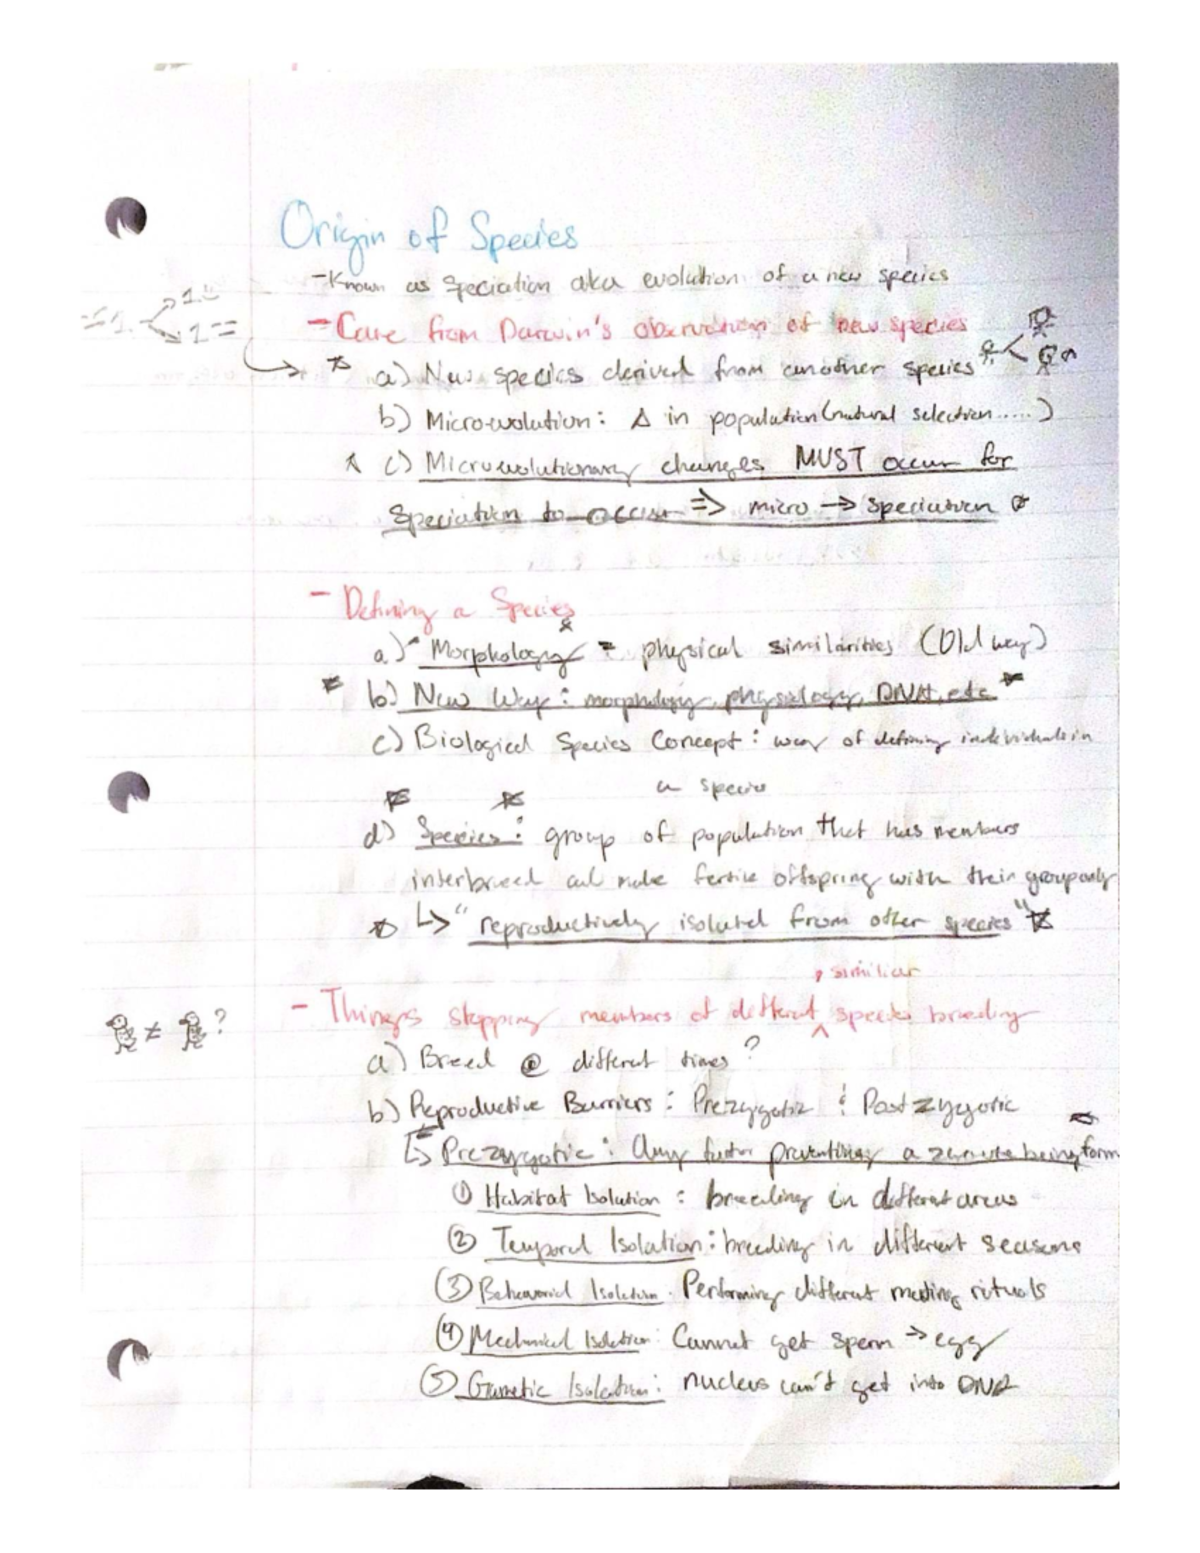 Origin of Species
- Known as speciation aka evolution of a new species
- Came from Darwin's observation of new species
a) New species derived from another species
b) Microevolution: Δ in population (natural selection.....)
c) Microevolutionary changes MUST occur for
speciation to occur => micro → speciation
- Defining a Species
a) Morphology = physical similarities (Old way)
b) New Way: morphology, physiology, DNA, etc
c) Biological Species Concept: way of defining individuals in
a species
d) Species: group of population that has members
interbreed and make fertile offspring with their group only
↳ "reproductively isolated from other species"
, similiar
- Things stopping members of different ^ species breeding
≠ ?
a) Breed @ different times?
b) Reproductive Barriers: Prezygotic & Postzygotic
↳ Prezygotic: Any factor preventing a being form
① Habitat Isolation: breeding in different areas
② Temporal Isolation: breeding in different seasons
③ Behavorial Isolation: Performing different mating rituals
④ Mechanical Isolation: Cannot get sperm → egg
⑤ Gametic Isolation: nucleus can't get into DNA